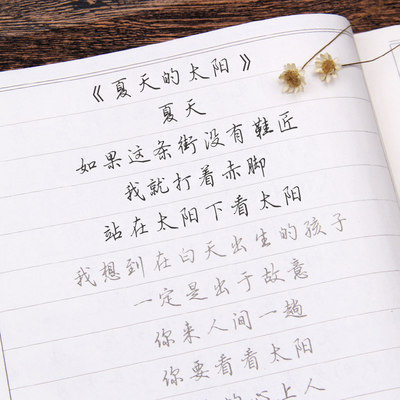 《夏天的太阳》
夏天
如果这条街没有鞋匠
我就打着赤脚
站在太阳下看太阳
我想到在白天出生的孩子
一定是出于故意
你来人间一趟
你要看看太阳
的心上人